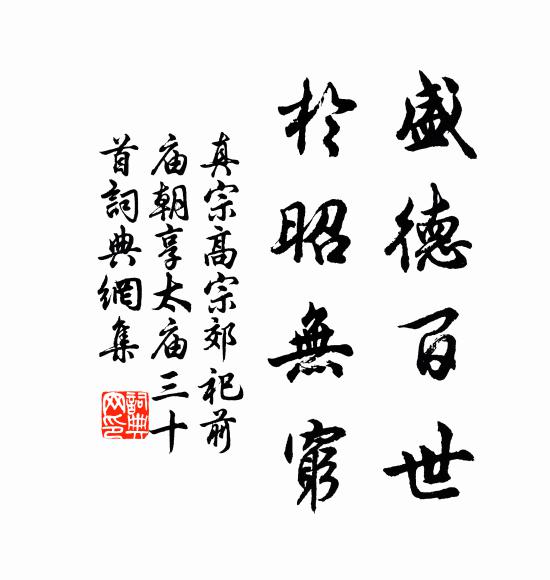 盛德百世
於昭無窮
真宗高宗郊祀前
庙朝享太庙三十
首詞典網集
詞典
网印